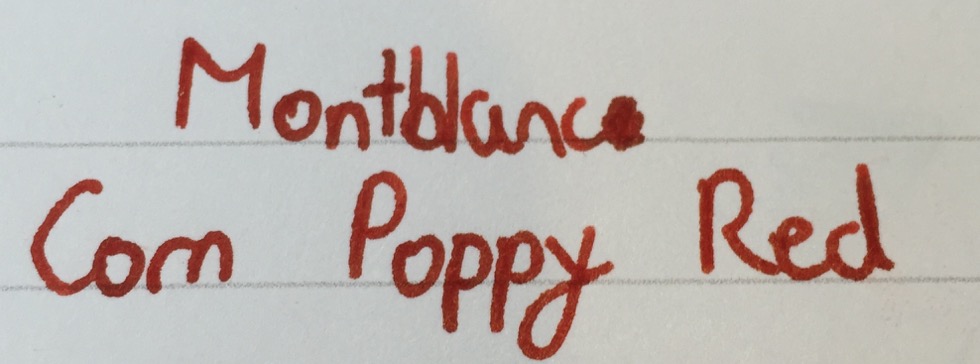 Montblanc
Corn Poppy Red